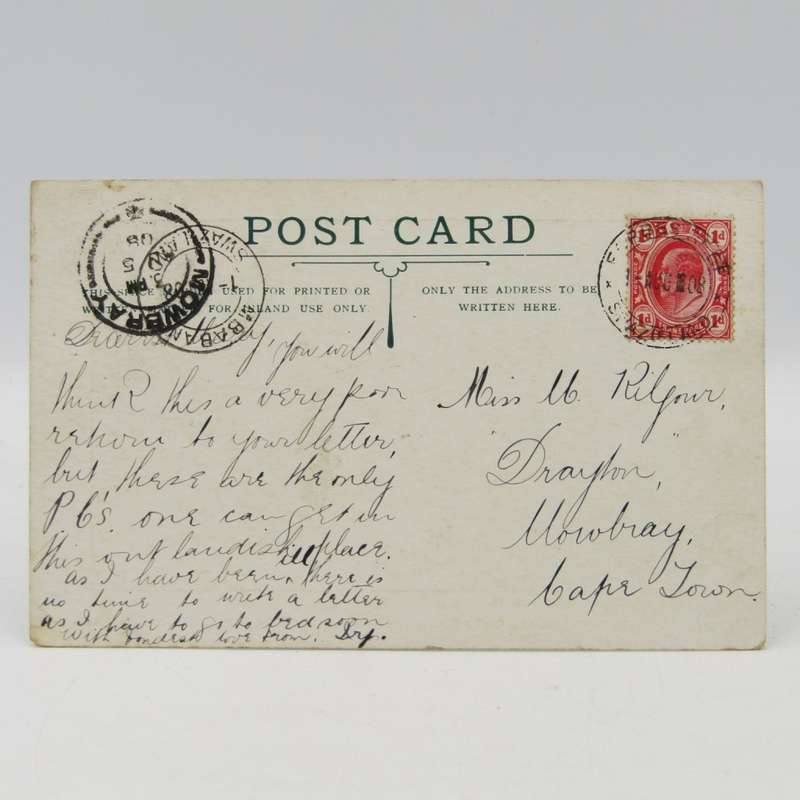 POST CARD
THIS SPACE USED FOR PRINTED OR
FOR INLAND USE ONLY.
ONLY THE ADDRESS TO BE
WRITTEN HERE.
MOWBRAY
PM
5
08
MBABANE
SWAZILAND
1d 1d
1d 1d
08
you will
think this a very poor
return to your letter,
but, these are the only
P.Cs. one can get in
this outlandish place.
as I have been ill, there is
no time to write a letter
as I have to go to bed soon
With fondest love from.
Miss M. Kilgour,
"Drayton,"
Mowbray,
Cape Town.